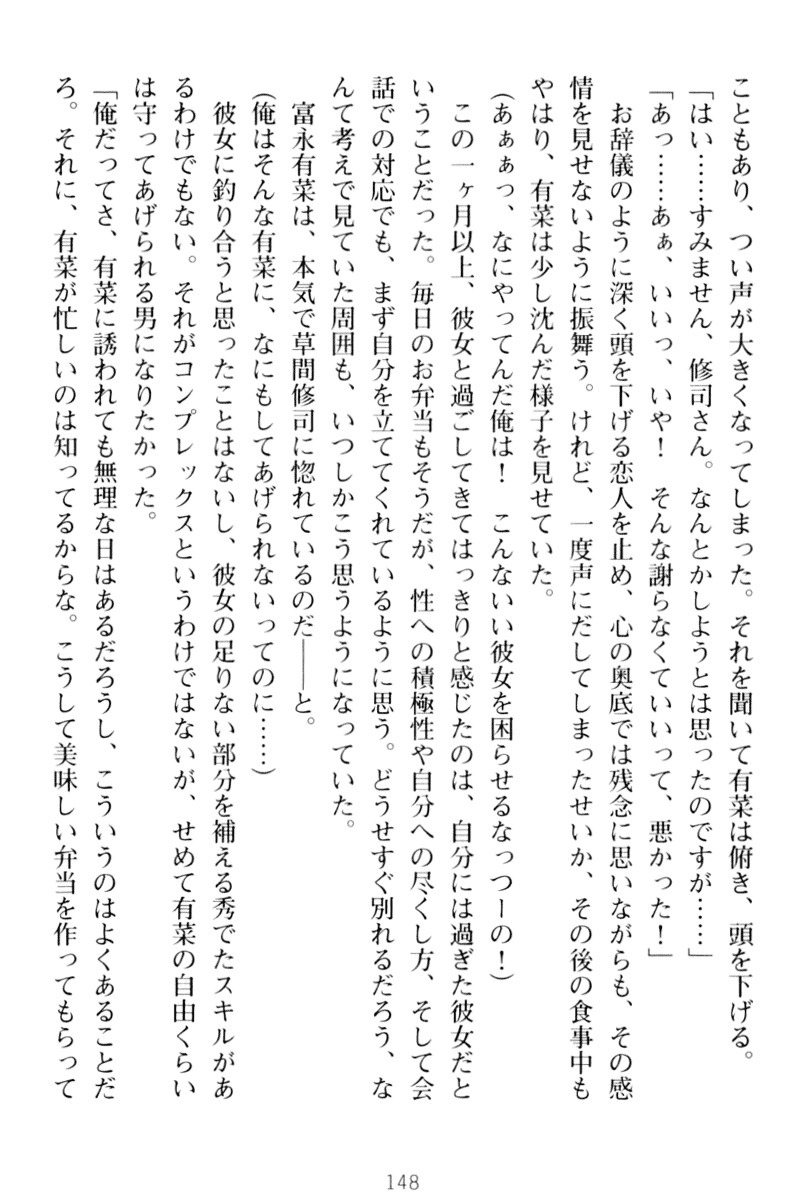 こともあり、つい声が大きくなってしまった。それを聞いて有菜は俯き、頭を下げる。
「はい……すみません、修司さん。なんとかしようとは思ったのですが……」
「あっ……あぁ、いいっ、いや！　そんな謝らなくていいって、悪かった！」
　お辞儀のように深く頭を下げる恋人を止め、心の奥底では残念に思いながらも、その感
情を見せないように振舞う。けれど、一度声にだしてしまったせいか、その後の食事中も
やはり、有菜は少し沈んだ様子を見せていた。
(あぁぁっ、なにやってんだ俺は！　こんないい彼女を困らせるなっつーの！)
　この一ヶ月以上、彼女と過ごしてきてはっきりと感じたのは、自分には過ぎた彼女だと
いうことだった。毎日のお弁当もそうだが、性への積極性や自分への尽くし方、そして会
話での対応でも、まず自分を立ててくれているように思う。どうせすぐ別れるだろう、な
んて考えで見ていた周囲も、いつしかこう思うようになっていた。
　富永有菜は、本気で草間修司に惚れているのだ――と。
(俺はそんな有菜に、なにもしてあげられないってのに……)
　彼女に釣り合うと思ったことはないし、彼女の足りない部分を補える秀でたスキルがあ
るわけでもない。それがコンプレックスというわけではないが、せめて有菜の自由くらい
は守ってあげられる男になりたかった。
「俺だってさ、有菜に誘われても無理な日はあるだろうし、こういうのはよくあることだ
ろ。それに、有菜が忙しいのは知ってるからな。こうして美味しい弁当を作ってもらって
148